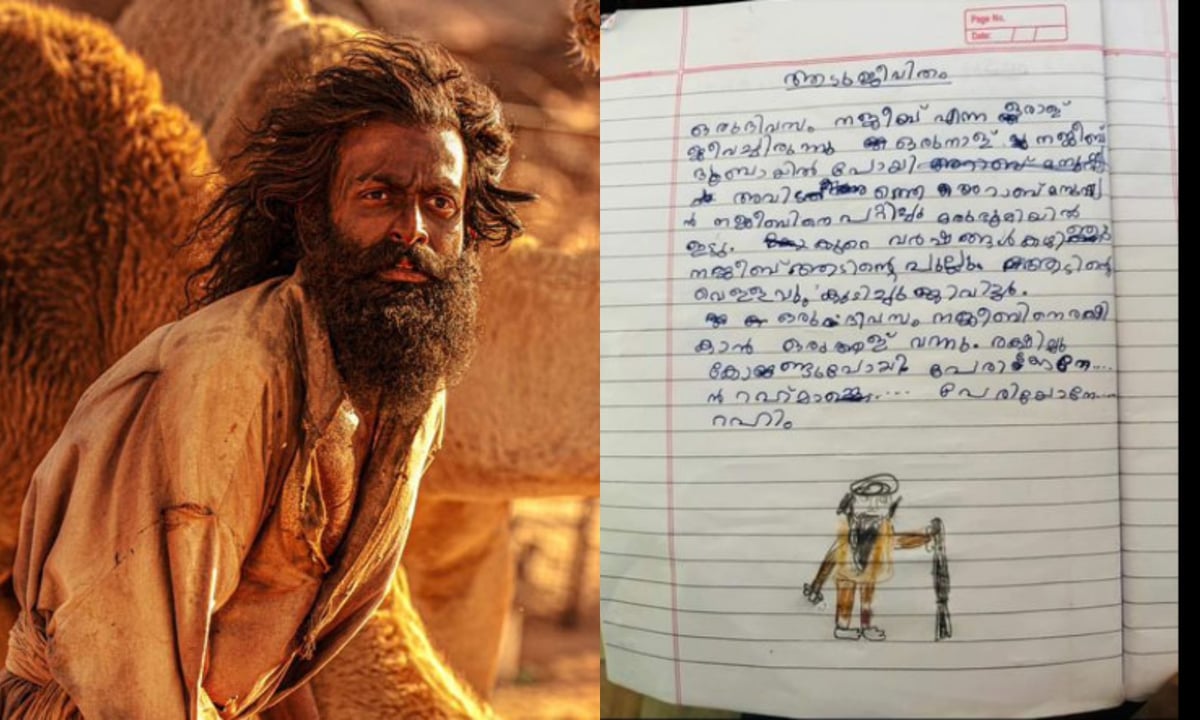 Page No.
Date:
ആടുജീവിതം
ഒരുദിവസം നജീബ് എന്ന ഒരാള്
ജീവച്ചിരുന്നു ഒരുനാള് നജീബ്
ദുബായിൽ പോയി
അവിടത്തെ അറാബ് മനുഷ്യ
ൻ നജീബിനെ പറ്റിച്ചു മരുഭൂമിയിൽ
ഇട്ടു. കുറെ വർഷങ്ങൾ കഴിഞ്ഞു
നജീബ് ആടിന്റെ പുല്ലും ആടിന്റെ
വെള്ളവും കുടിച്ചു ജീവിച്ചു.
ഒരു ദിവസം നജീബിനെ രക്ഷി
കാൻ ഒരു ആള് വന്നു. രക്ഷിച്ചു
കോണ്ടുപോയി പേരി
ൻ റഹ്മാനെ..... പേരിയോനേ....
റഹിം